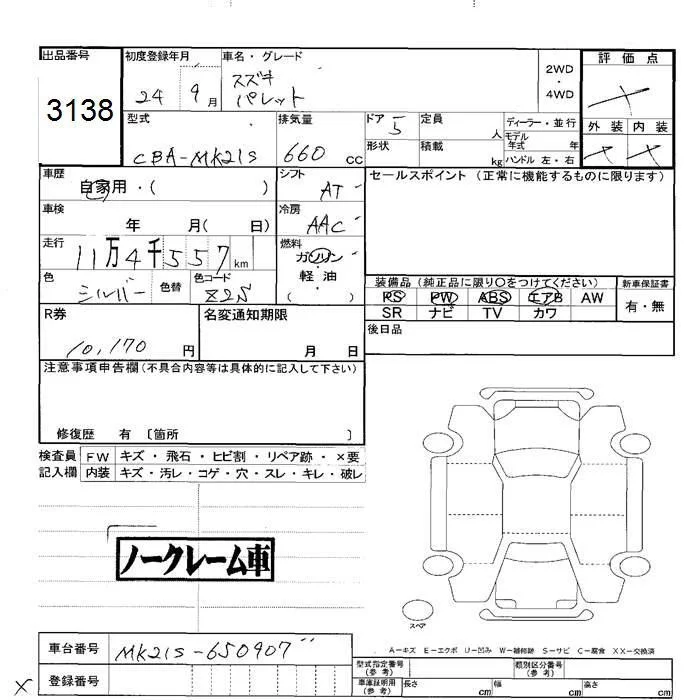 出品番号 初度登録年月 車名・グレード 2WD・4WD 評価点
3138 24 9月 スズキ
パレット
型式 排気量 ドア 5 定員 人 ディーラー・並行 外装 内装
CBA-MK21S 660 CC 形状 積載 kg モデル年式 年
ハンドル 左・右
車歴 シフト セールスポイント (正常に機能するものに限ります)
自家用・( ) AT
車検 冷房
年 月( 日) AAC
走行 燃料
11万4千557km ガソリン・軽油
( )
色 シルバー 色替 色コード Z2S
装備品 (純正品に限り○をつけてください) 新車保証書
PS PW ABS エアB AW 有・無
SR ナビ TV カワ
R券 名変通知期限 後日品
10,170 円 月 日
注意事項申告欄(不具合内容等は具体的に記入して下さい)
修復歴 有 〔箇所 〕
検査員 FW キズ・飛石・ヒビ割・リペア跡・×要
記入欄 内装 キズ・汚レ・コゲ・穴・スレ・キレ・破レ
ノークレーム車
スペア
A-キズ E-エクボ U-凹み W-補修跡 S-サビ C-腐食 XX-交換済
車台番号 MK21S-650907
登録番号
型式指定番号(参考) 類別区分番号(参考)
車庫証明用(参考) 長さ cm 幅 cm 高さ cm